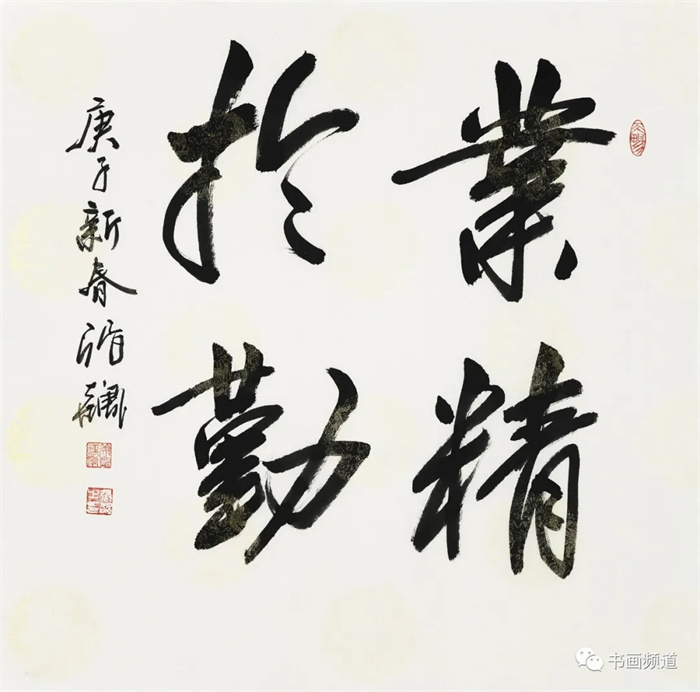 業精
於勤
庚子新春
书画频道